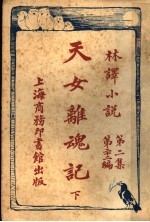 林譯小說
第二集
第三編
天女離魂記
下
上海商務印書館出版